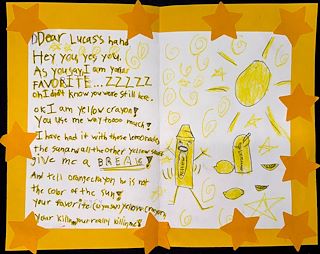 Dear Lucas's hand
Hey you, yes you.
As you say I am your
FAVORITE...ZZZZZ
oh I didn't know you were still here.
ok I am yellow crayon!
You use me way toooo much!
I have had it with those lemonades
the sun and all the other yellow stuff
give me a BREAK!
And tell orange crayon he is not
the color of the sun!
your favorite (as you say) yellow crayon
your killin your really killin me!